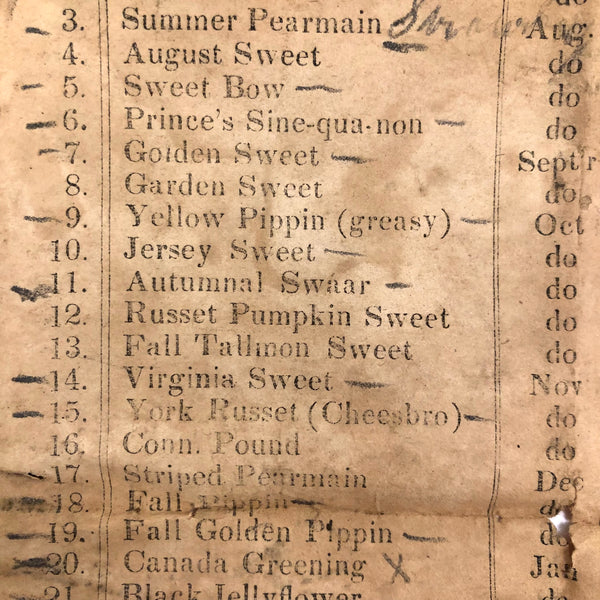 do
3. Summer Pearmain Aug.
4. August Sweet do
5. Sweet Bow — do
6. Prince's Sine-qua-non — do
7. Golden Sweet — Sept'r
8. Garden Sweet do
9. Yellow Pippin (greasy) — Oct
10. Jersey Sweet — do
11. Autumnal Swáar — do
12. Russet Pumpkin Sweet do
13. Fall Tallmon Sweet do
14. Virginia Sweet — Nov
15. York Russet (Cheesbro) — do
16. Conn. Pound do
17. Striped Pearmain Dec
18. Fall Pippin — do
19. Fall Golden Pippin — do
20. Canada Greening X Jan
21. Black Jellyflower do